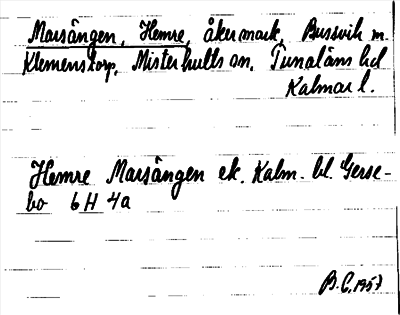 Marsängen, Hemre, åkermark, Bussvik m.
Klemenstorp, Misterhults sn, Tunaläns hd
Kalmar l.
Hemre Marsängen ek. Kalm. bl. Gerse-
bo 6 H 4a
B.C. 1957